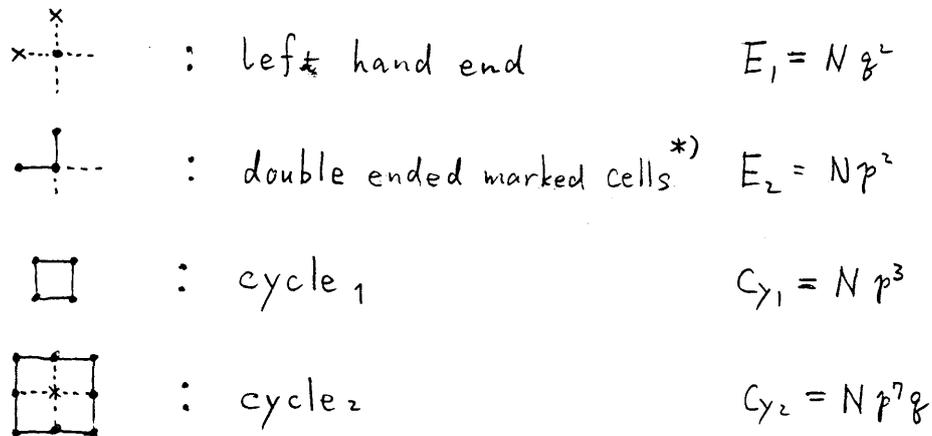 : left hand end E₁ = N q²
: double ended marked cells *) E₂ = N p²
: cycle ₁ Cy₁ = N p³
: cycle ₂ Cy₂ = N p⁷ q